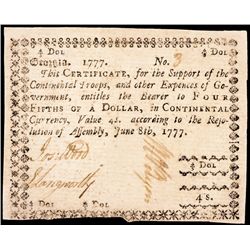 ⅘ Dol ⅘ Dol
Georgia. 1777. No. 3
This Certificate, for the Support of the
Continental Troops, and other Expences of Go-
vernment, entitles the Bearer to Four
Fifths of a Dollar, in Continental
Currency, Value 4s. according to the Reso-
lution of Assembly, June 8th, 1777.
⅘ Dol ⅘ Dol
4 s.